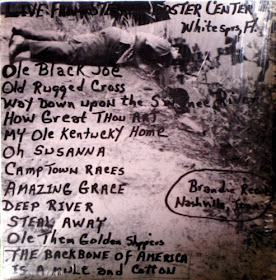 LIVE FROM STEPHEN FOSTER CENTER
White Spgs, Fl.
Ole Black Joe
Old Rugged Cross
Way Down upon the Swanee River
How Great Thou Art
My Ole Kentucky Home
Oh SUSANNA
Camp Town Races
AMAZING GRACE
DEEP RIVER
STEAL AWAY
Ole Them Golden Slippers
THE BACKBONE OF AMERICA
IS A mule and Cotton
Brandie
Nashville, Tenn